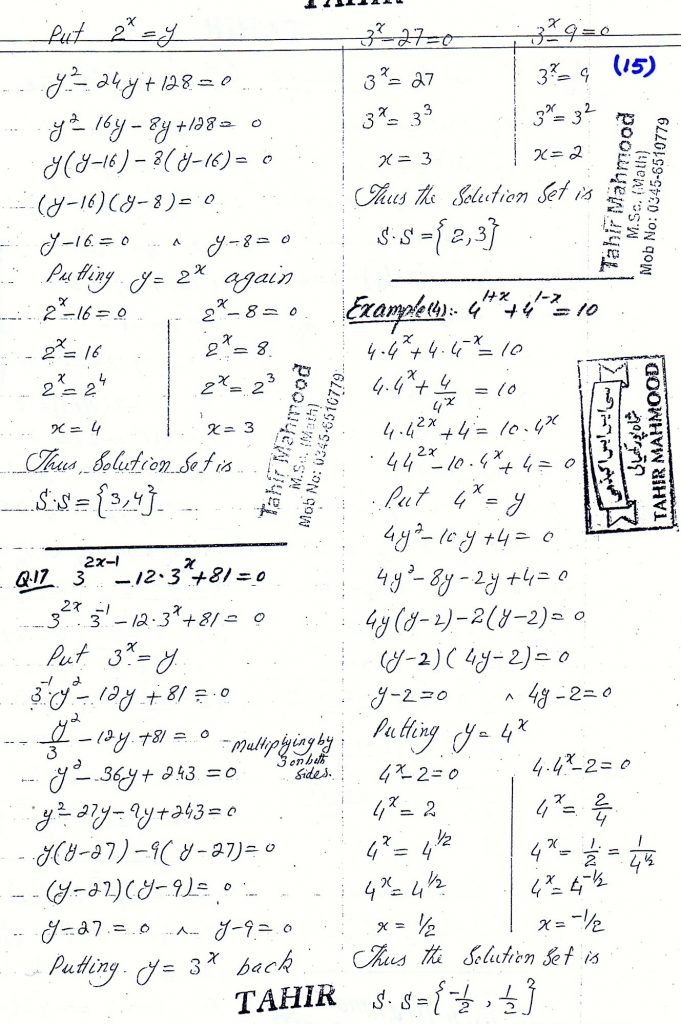 TAHIR
Put 2^x = y
y² - 24y + 128 = 0
y² - 16y - 8y + 128 = 0
y(y-16) - 8(y-16) = 0
(y-16)(y-8) = 0
y-16 = 0 ^ y-8 = 0
Putting y = 2^x again
2^x - 16 = 0 | 2^x - 8 = 0
2^x = 16 | 2^x = 8
2^x = 2^4 | 2^x = 2^3
x = 4 | x = 3
Thus, Solution Set is
S.S = {3,4}
Q.17 3^(2x-1) - 12·3^x + 81 = 0
3^(2x) 3^(-1) - 12·3^x + 81 = 0
Put 3^x = y
3^(-1) y² - 12y + 81 = 0
y²/3 - 12y + 81 = 0 - multiplying by 3 on both sides.
y² - 36y + 243 = 0
y² - 27y - 9y + 243 = 0
y(y-27) - 9(y-27) = 0
(y-27)(y-9) = 0
y-27 = 0 ^ y-9 = 0
Putting y = 3^x back
3^x - 27 = 0 | 3^x - 9 = 0
(15)
3^x = 27 | 3^x = 9
3^x = 3^3 | 3^x = 3^2
x = 3 | x = 2
Thus the Solution Set is
S.S = {2,3}
Example(4):- 4^(1+x) + 4^(1-x) = 10
4·4^x + 4·4^(-x) = 10
4·4^x + 4/4^x = 10
4·4^(2x) + 4 = 10·4^x
4 4^(2x) - 10·4^x + 4 = 0
Put 4^x = y
4y² - 10y + 4 = 0
4y² - 8y - 2y + 4 = 0
4y(y-2) - 2(y-2) = 0
(y-2)(4y-2) = 0
y-2 = 0 ^ 4y-2 = 0
Putting y = 4^x
4^x - 2 = 0 | 4·4^x - 2 = 0
4^x = 2 | 4^x = 2/4
4^x = 4^(1/2) | 4^x = 1/2 = 1/4^(1/2)
4^x = 4^(1/2) | 4^x = 4^(-1/2)
x = 1/2 | x = -1/2
Thus the Solution Set is
S.S = {-1/2, 1/2}
Tahir Mahmood
M.Sc. (Math)
Mob No: 0345-6510779
Tahir Mahmood
M.Sc. (Math)
Mob No: 0345-6510779
TAHIR MAHMOOD
TAHIR